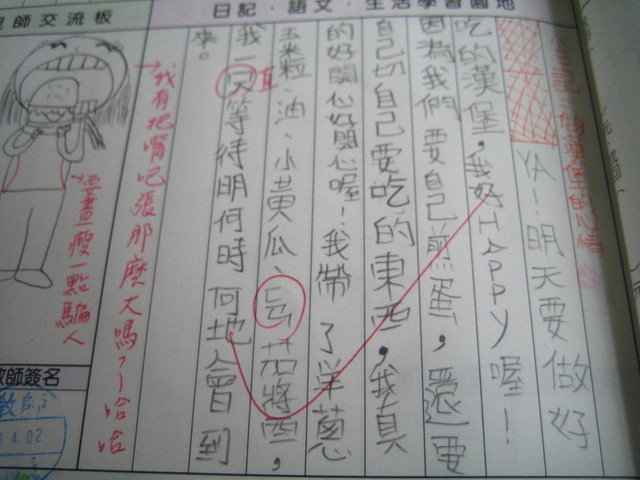 日記‧語文‧生活學習園地
日記:做漢堡的心情
YA!明天要做好
吃的漢堡,我好HAPPY喔!
因為我們要自己煎蛋,還要
自己切自己要吃的東西,我真
的好開心好開心喔!我帶了洋蔥
玉米粒、油、小黃瓜、
茄將
我一
直
等待明何時何地人會到
來。
我有把嘴吧張那麼大嗎?~哈哈
師交流板
畫瘦一點騙人
教師簽名
4.02